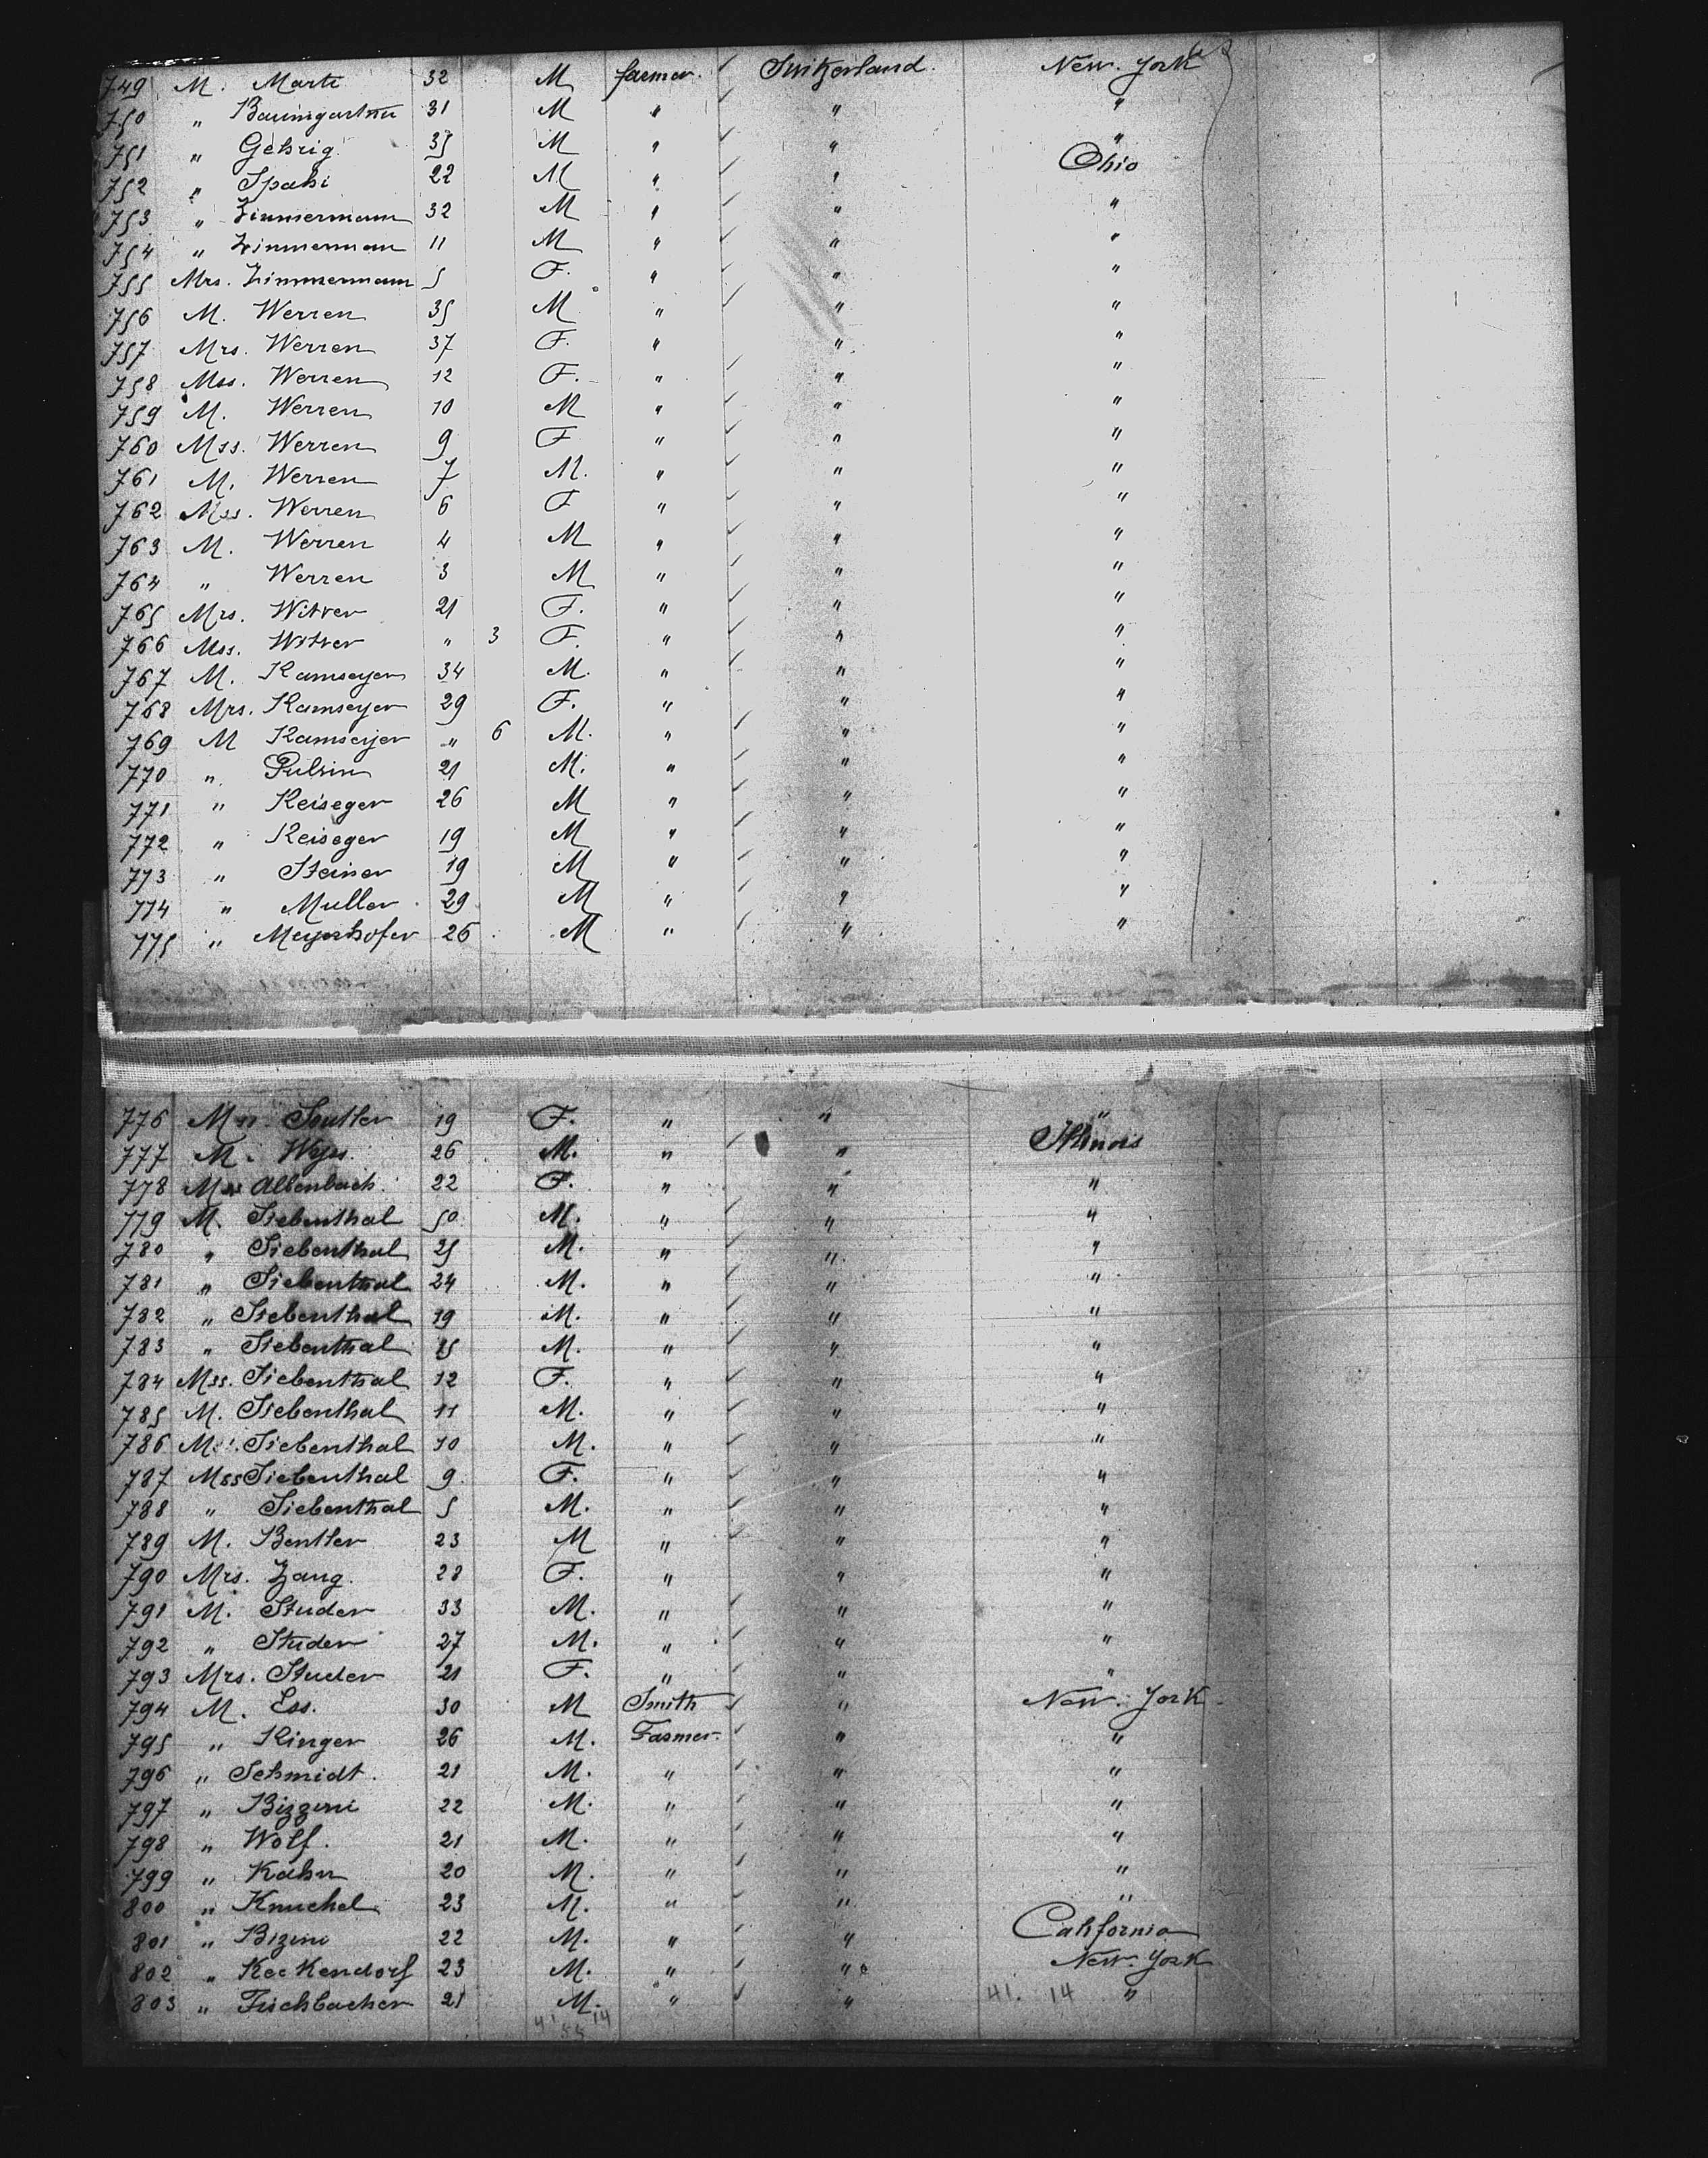 749 M. Marti 32 M farmer. Switzerland. New. York
750 " Baumgartner 31 M " " "
751 " Gehrig 35 M " " "
752 " Spahi 22 M " " Ohio
753 " Zimmermann 32 M " " "
754 " Zimmermann 11 M " " "
755 Mrs. Zimmermann 5 F. " " "
756 M. Werren 35 M " " "
757 Mrs. Werren 37 F. " " "
758 Mss. Werren 12 F. " " "
759 M. Werren 10 M " " "
760 Mss. Werren 9 F " " "
761 M. Werren 7 M. " " "
762 Mss. Werren 6 F " " "
763 M. Werren 4 M " " "
764 " Werren 3 M " " "
765 Mrs. Witver 21 F. " " "
766 Mss. Witver " 3 F. " " "
767 M. Ramseyer 34 M. " " "
768 Mrs. Ramseyer 29 F. " " "
769 M Ramseyer " 6 M. " " "
770 " 21 M. " " "
771 " Reiseger 26 M " " "
772 " Reiseger 19 M " " "
773 " Steiner 19 M " " "
774 " Muller 29 M " " "
775 " Meyerhofer 26 M " " "
776 Souller 19 F. " " "
777 M. Wyss. 26 M. " " Illinois
778 Allenbach. 22 F. " " "
779 M. Siebenthal 50 M. " " "
780 " Siebenthal 25 M. " " "
781 " Siebenthal 24 M. " " "
782 " Siebenthal 19 M. " " "
783 " Siebenthal 15 M. " " "
784 Mss. Siebenthal 12 F. " " "
785 M. Siebenthal 11 M. " " "
786 Siebenthal 10 M. " " "
787 Mss Siebenthal 9 F. " " "
788 " Siebenthal 5 M. " " "
789 M. Bentler 23 M " " "
790 Mrs. Zaug. 28 F. " " "
791 M. Studer 33 M. " " "
792 " Studer 27 M. " " "
793 Mrs. Studer 21 F. " " "
794 M. Ess. 30 M Smith " New. York
795 " Ringer 26 M. Farmer. " "
796 " Schmidt. 21 M. " " "
797 " Bizzini 22 M. " " "
798 " Wolf. 21 M. " " "
799 " Kahn 20 M. " " "
800 " Knuchel 23 M. " " "
801 " Bizini 22 M. " " California
802 " Keckendorf 23 M. " " New. York
803 " Fischbacher 21 M. " " 41. 14 "
41 14